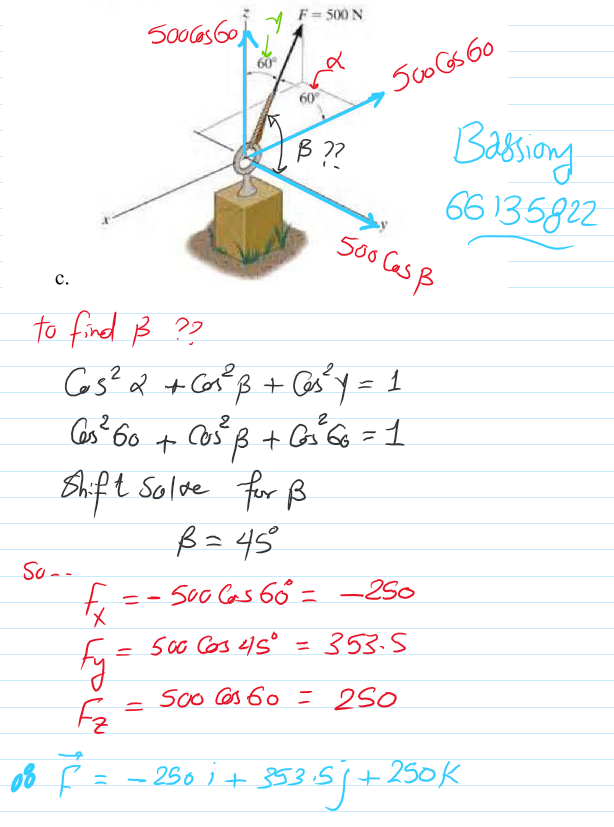 z
γ
F = 500 N
500 Cos 60
60°
α
500 Cos 60
60°
β ??
Bassiony
66135822
x
y
500 Cos β
c.
to find β ??
Cos² α + Cos² β + Cos² γ = 1
Cos² 60 + Cos² β + Cos² 60 = 1
Shift Solve for β
β = 45°
So--
Fx = - 500 Cos 60° = -250
Fy = 500 Cos 45° = 353.5
Fz = 500 Cos 60 = 250
F = - 250 i + 353.5 j + 250 K